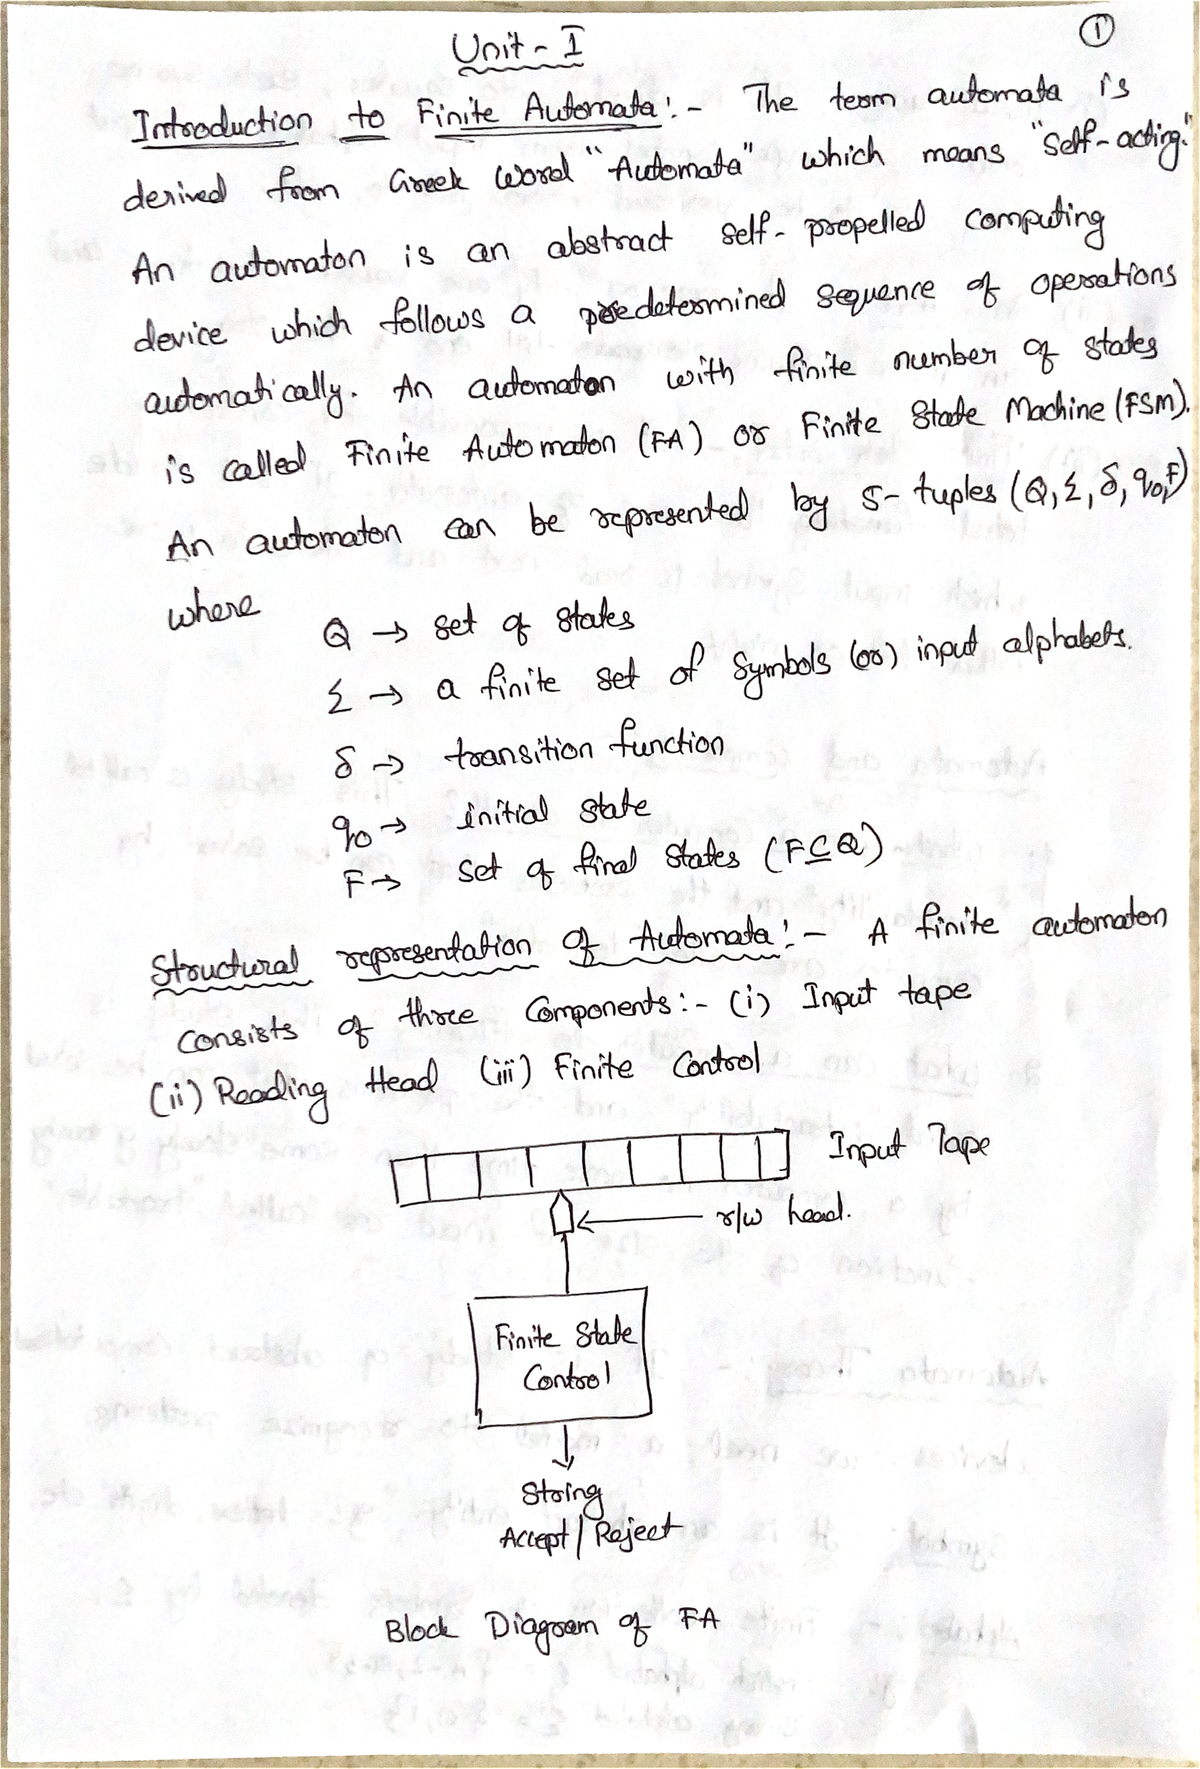 Unit - I
①
Introduction to Finite Automata :- The term automata is
derived from Greek word "Automata" which means "self-acting."
An automaton is an abstract self-propelled computing
device which follows a predetermined sequence of operations
automatically. An automaton with finite number of states
is called Finite Automaton (FA) or Finite State Machine (FSM).
An automaton can be represented by 5-tuples (Q, Σ, δ, q0, F)
where
Q → set of states
Σ → a finite set of symbols (or) input alphabets.
δ → transition function
q0 → initial state
F → set of final states (F ⊆ Q)
Structural representation of Automata :- A finite automaton
consists of three components :- (i) Input tape
(ii) Reading Head (iii) Finite Control
Input Tape
r/w head.
Finite State
Control
String
Accept / Reject
Block Diagram of FA